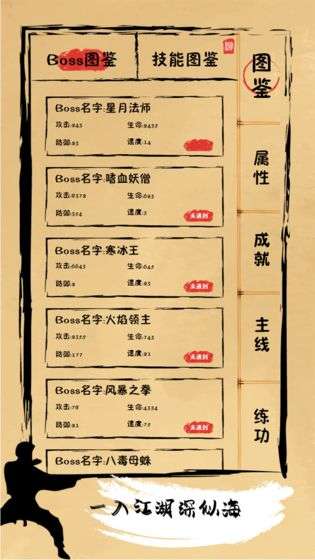 Boss图鉴
技能图鉴
图鉴
Boss名字:星月法师
攻击:945
生命:9437
防御:95
速度:14
属性
Boss名字:嗜血妖僧
速度:2
未遇到
成就
Boss名字:寒冰王
攻击:6645
生命:645
速度:85
未遇到
主线
Boss名字:火焰领主
生命:745
防御:177
速度:21
未遇到
练功
Boss名字:风暴之拳
攻击:78
生命:4554
速度:72
未遇到
Boss名字:八毒母蛛
一入江湖深似海